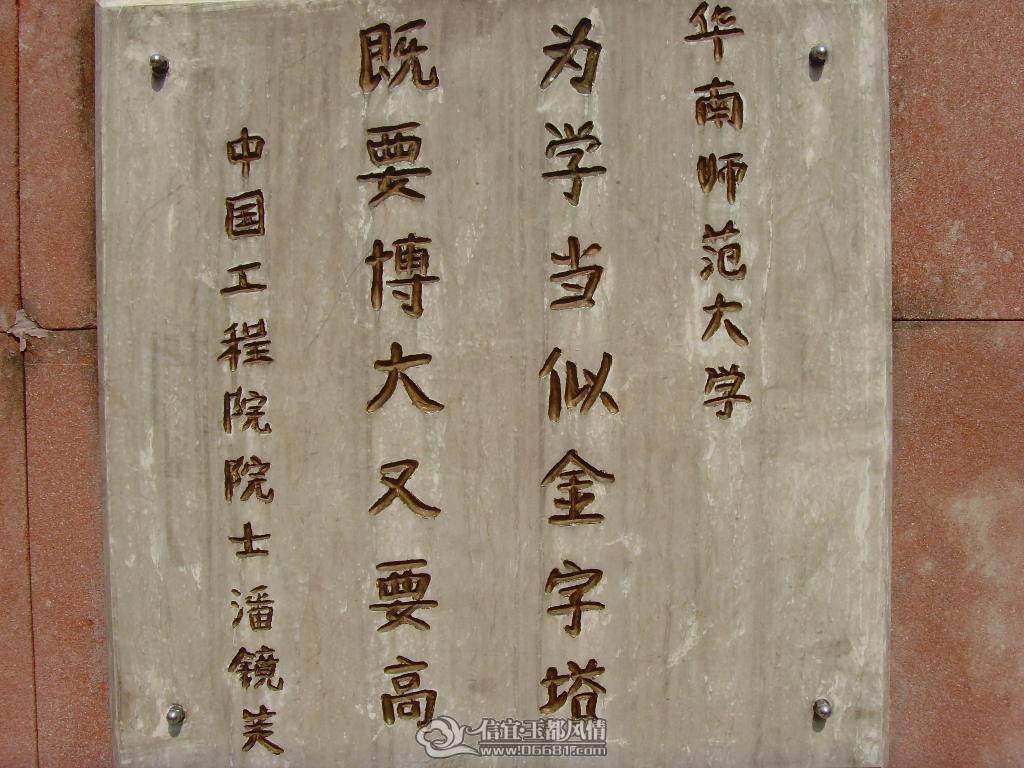 华南师范大学
为学当似金字塔
既要博大又要高
中国工程院院士潘镜芙
信宜玉都风情
www.06681.com